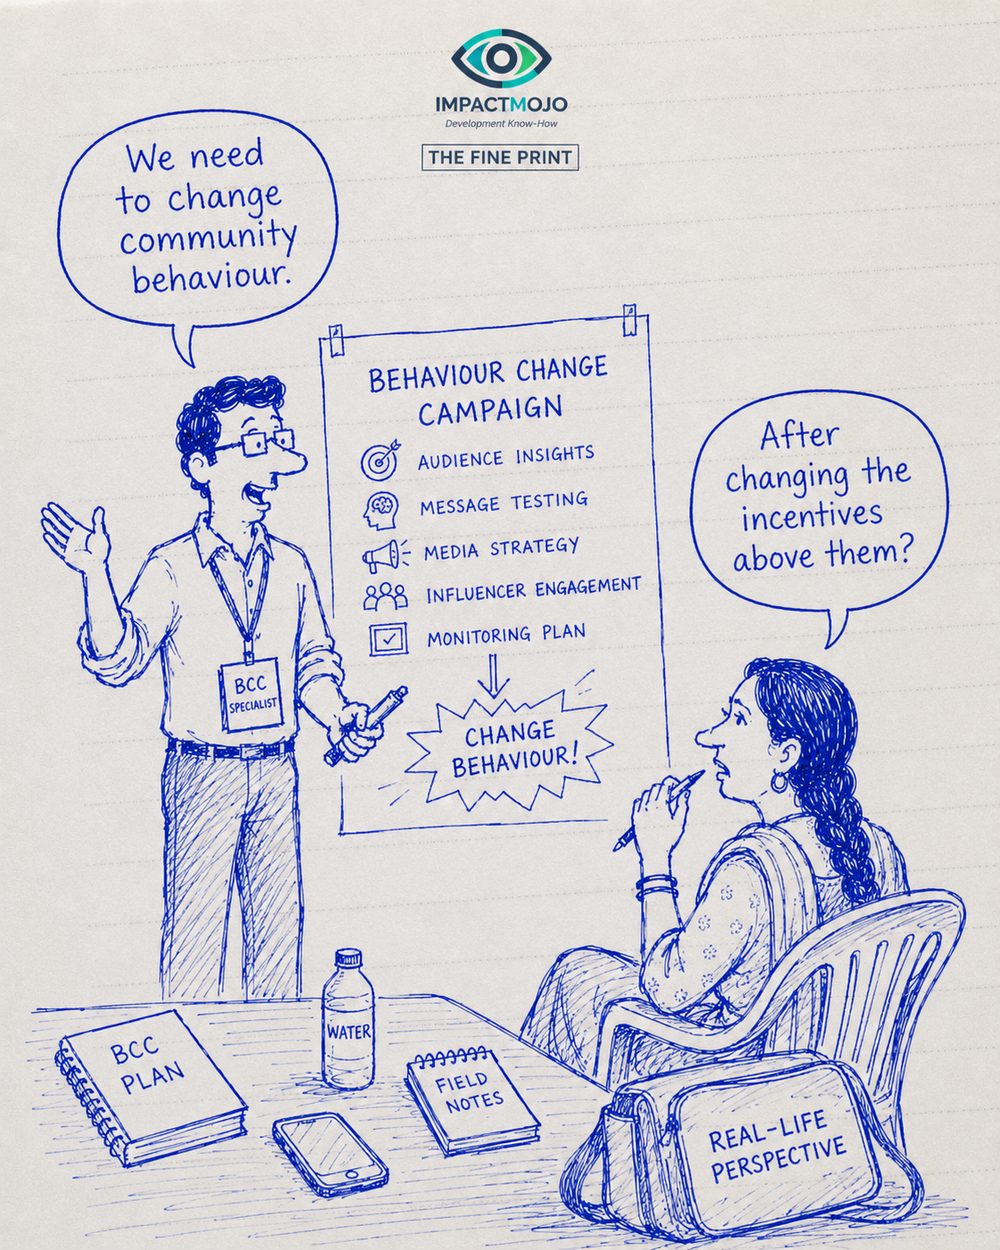 IMPACTMOJO
Development Know-How
THE FINE PRINT
We need
to change
community
behaviour.
BEHAVIOUR CHANGE
CAMPAIGN
AUDIENCE INSIGHTS
MESSAGE TESTING
MEDIA STRATEGY
INFLUENCER ENGAGEMENT
MONITORING PLAN
CHANGE
BEHAVIOUR!
After
changing the
incentives
above them?
BCC
SPECIALIST
WATER
BCC
PLAN
FIELD
NOTES
REAL-LIFE
PERSPECTIVE